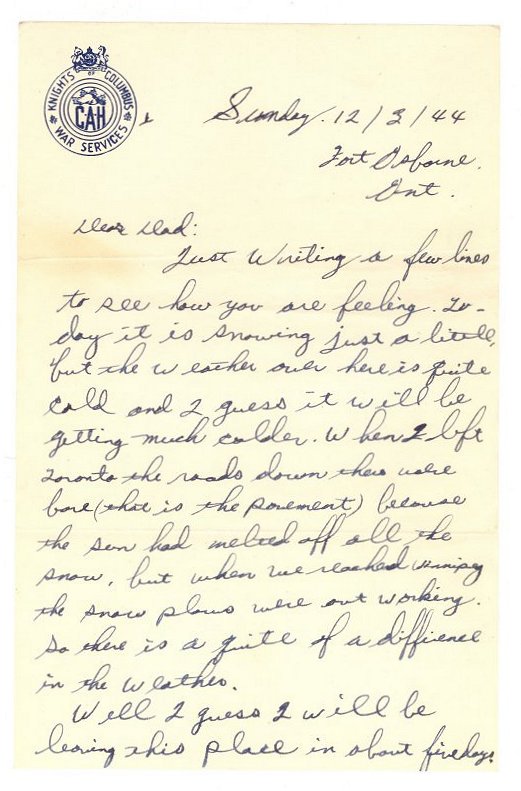 KNIGHTS OF COLUMBUS
CAH
WAR SERVICES
Sunday. 12/3/44
Fort Osborne.
Ont.
Dear Dad:
Just Writing a few lines
to see how you are feeling. To-
day it is snowing just a little,
but the weather over here is quite
cold and I guess it will be
getting much colder. When I left
Toronto the roads down there were
bare (that is the pavement) because
the sun had melted off all the
snow, but when we reached Winnipeg
the snow plows were out working.
So there is a quite of a diffrence
in the weather.
Well I guess I will be
leaving this place in about five days.